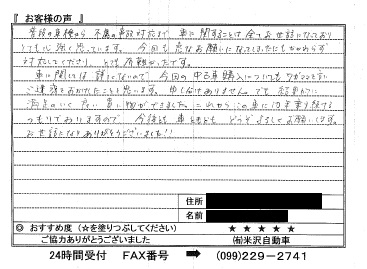 『 お客様の声 』
普段の車検から 不慮の事故対応まで 車に関することは 全てお世話になっており
とても心強く思っています。 今回も急なお願いになってしまったにもかかわらず
対応してくださり、とても有難かったです。
車に関しては 詳しくないので 今回の中古車購入についても
ご迷惑をおかけしたことと思います。申し訳ありません。でも 結果的に
満足のいく 良い 買い物ができました。これからこの車に10年乗り続ける
つもりでおりますので 今後とも 車ともども どうぞよろしくお願いします。
お世話になりありがとうございました!!
住所
名前
◎ おすすめ度（☆を塗りつぶしてください） ★ ★ ★ ★ ★
ご協力ありがとうございました ㈲米沢自動車
24時間受付 FAX番号 ➡ (099)229-2741